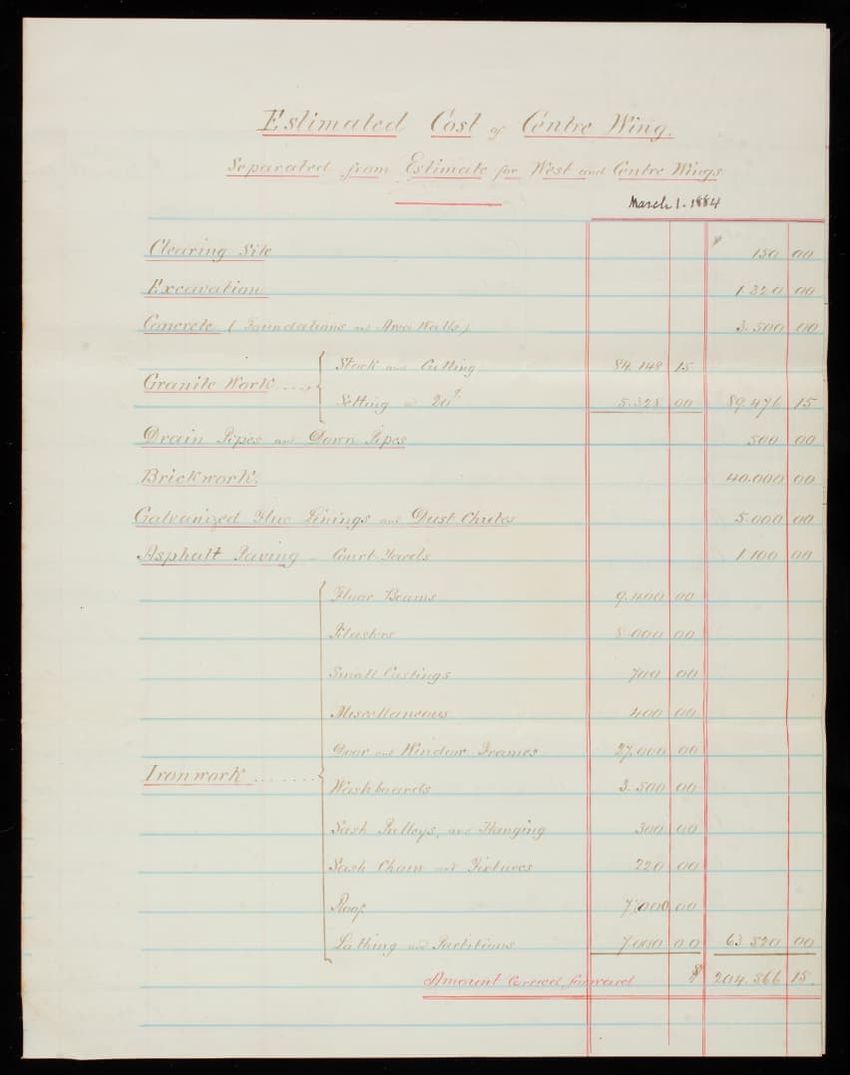 Estimated Cost of Centre Wing.
Separated from Estimate for West and Centre Wings
March 1. 1884
Clearing Site 150 00
Excavation 1.320 00
Concrete (Foundations and Area Walls) 3.500 00
Stock and Cutting 84.148 15
Granite Work
Setting 5.328 00 89.476 15
Drain Pipes and Down Pipes 500 00
Brickwork. 40.000 00
Galvanized Flue Linings and Dust Chutes 5.000 00
Asphalt Paving - Court Yards 1.100 00
Floor Beams 9.400 00
Pilasters 8.000 00
Small Castings 700 00
Miscellaneous 400 00
Door and Window Frames 27.000 00
Ironwork
Washboards 3.500 00
Sash Pulleys, and Hanging 300 00
Sash Chain and Fixtures 220 00
Roof 7.000 00
Lathing and Partitions 7.000 00 63 520 00
Amount Carried forward $ 204.566 15.